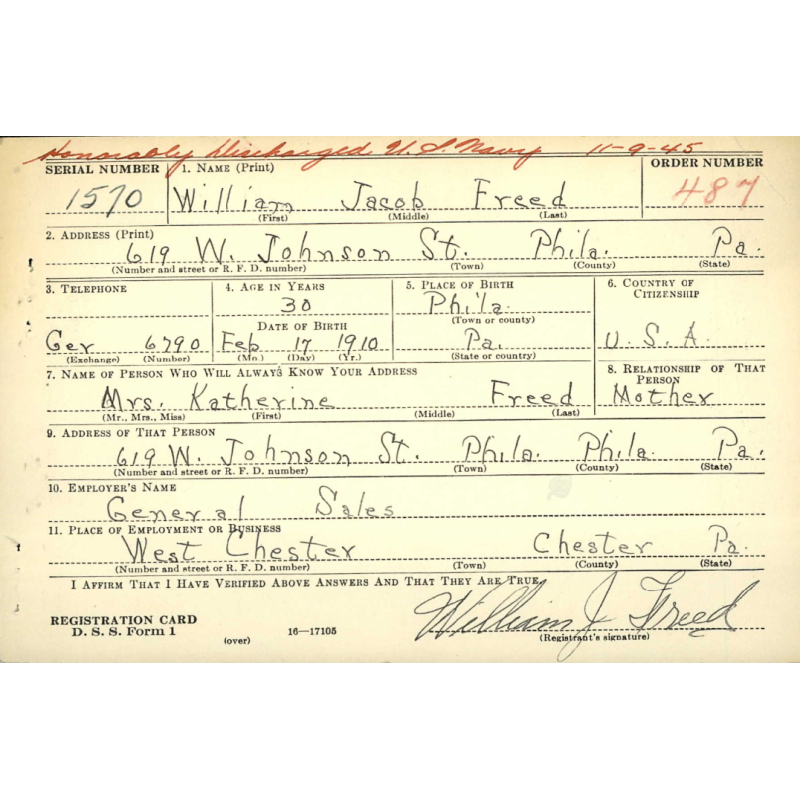 Honorably Discharged U.S. Navy 11-9-45
SERIAL NUMBER 1. NAME (Print) ORDER NUMBER
1570 William Jacob Freed 487
(First) (Middle) (Last)
2. ADDRESS (Print)
619 W. Johnson St. Phila. Pa.
(Number and street or R. F. D. number) (Town) (County) (State)
3. TELEPHONE 4. AGE IN YEARS 5. PLACE OF BIRTH 6. COUNTRY OF CITIZENSHIP
30 Phila.
DATE OF BIRTH (Town or county)
Ger 6790 Feb 17 1910 Pa. U.S.A.
(Exchange) (Number) (Mo.) (Day) (Yr.) (State or country)
7. NAME OF PERSON WHO WILL ALWAYS KNOW YOUR ADDRESS 8. RELATIONSHIP OF THAT PERSON
Mrs. Katherine Freed Mother
(Mr., Mrs., Miss) (First) (Middle) (Last)
9. ADDRESS OF THAT PERSON
619 W. Johnson St. Phila. Phila. Pa.
(Number and street or R. F. D. number) (Town) (County) (State)
10. EMPLOYER'S NAME
General Sales
11. PLACE OF EMPLOYMENT OR BUSINESS
West Chester Chester Pa.
(Number and street or R. F. D. number) (Town) (County) (State)
I AFFIRM THAT I HAVE VERIFIED ABOVE ANSWERS AND THAT THEY ARE TRUE.
REGISTRATION CARD William J Freed
D. S. S. Form 1 (over) 16—17105 (Registrant's signature)